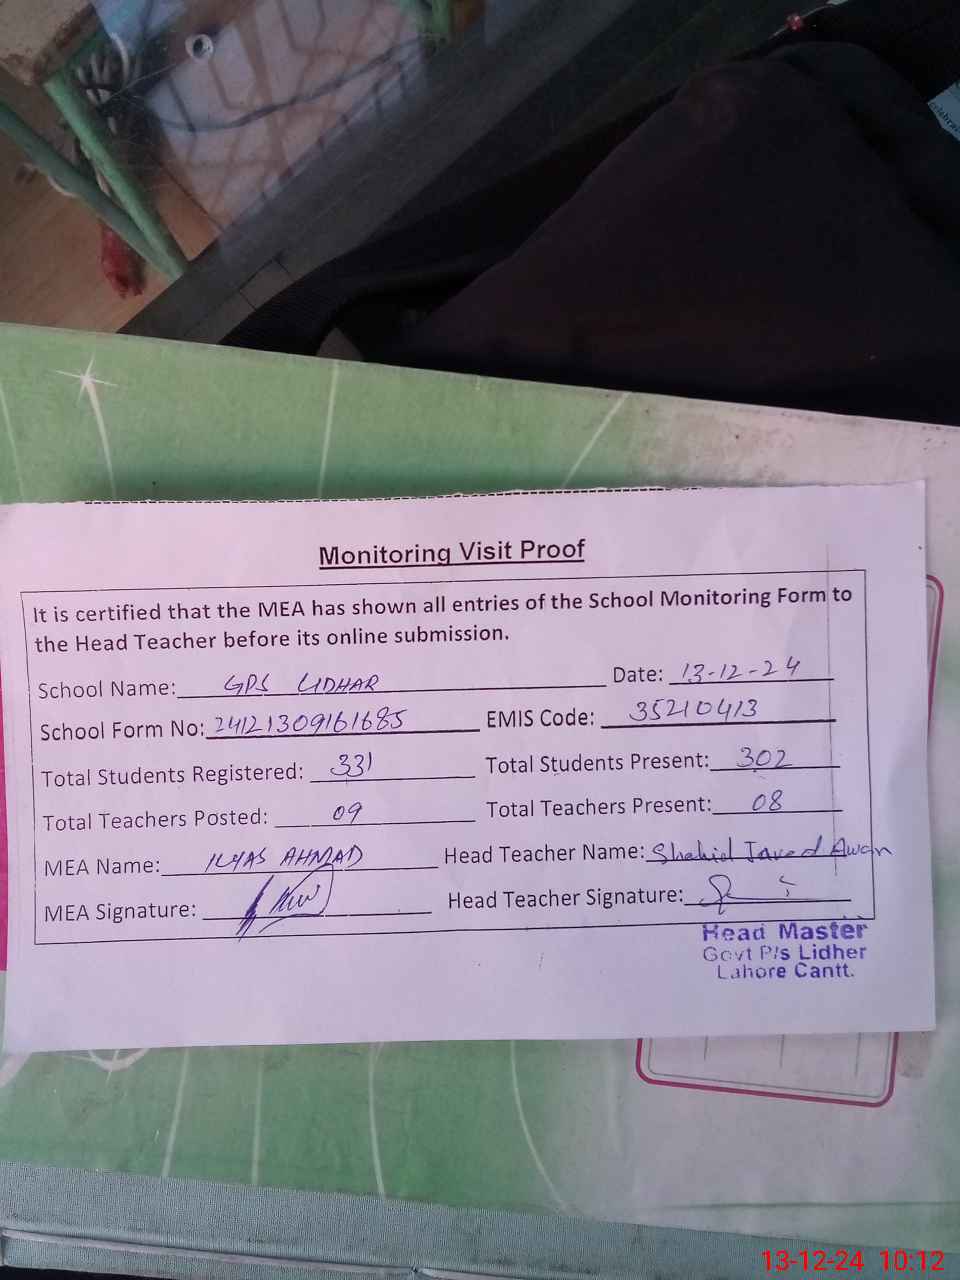 Monitoring Visit Proof
It is certified that the MEA has shown all entries of the School Monitoring Form to
the Head Teacher before its online submission.
School Name: GPS LIDHAR Date: 13-12-24
School Form No: 24121309161685 EMIS Code: 35210413
Total Students Registered: 331 Total Students Present: 302
Total Teachers Posted: 09 Total Teachers Present: 08
MEA Name: ILYAS AHMAD Head Teacher Name: Shahid Javed Awan
MEA Signature: Head Teacher Signature:
Head Master
Govt P/s Lidher
Lahore Cantt.
13-12-24 10:12